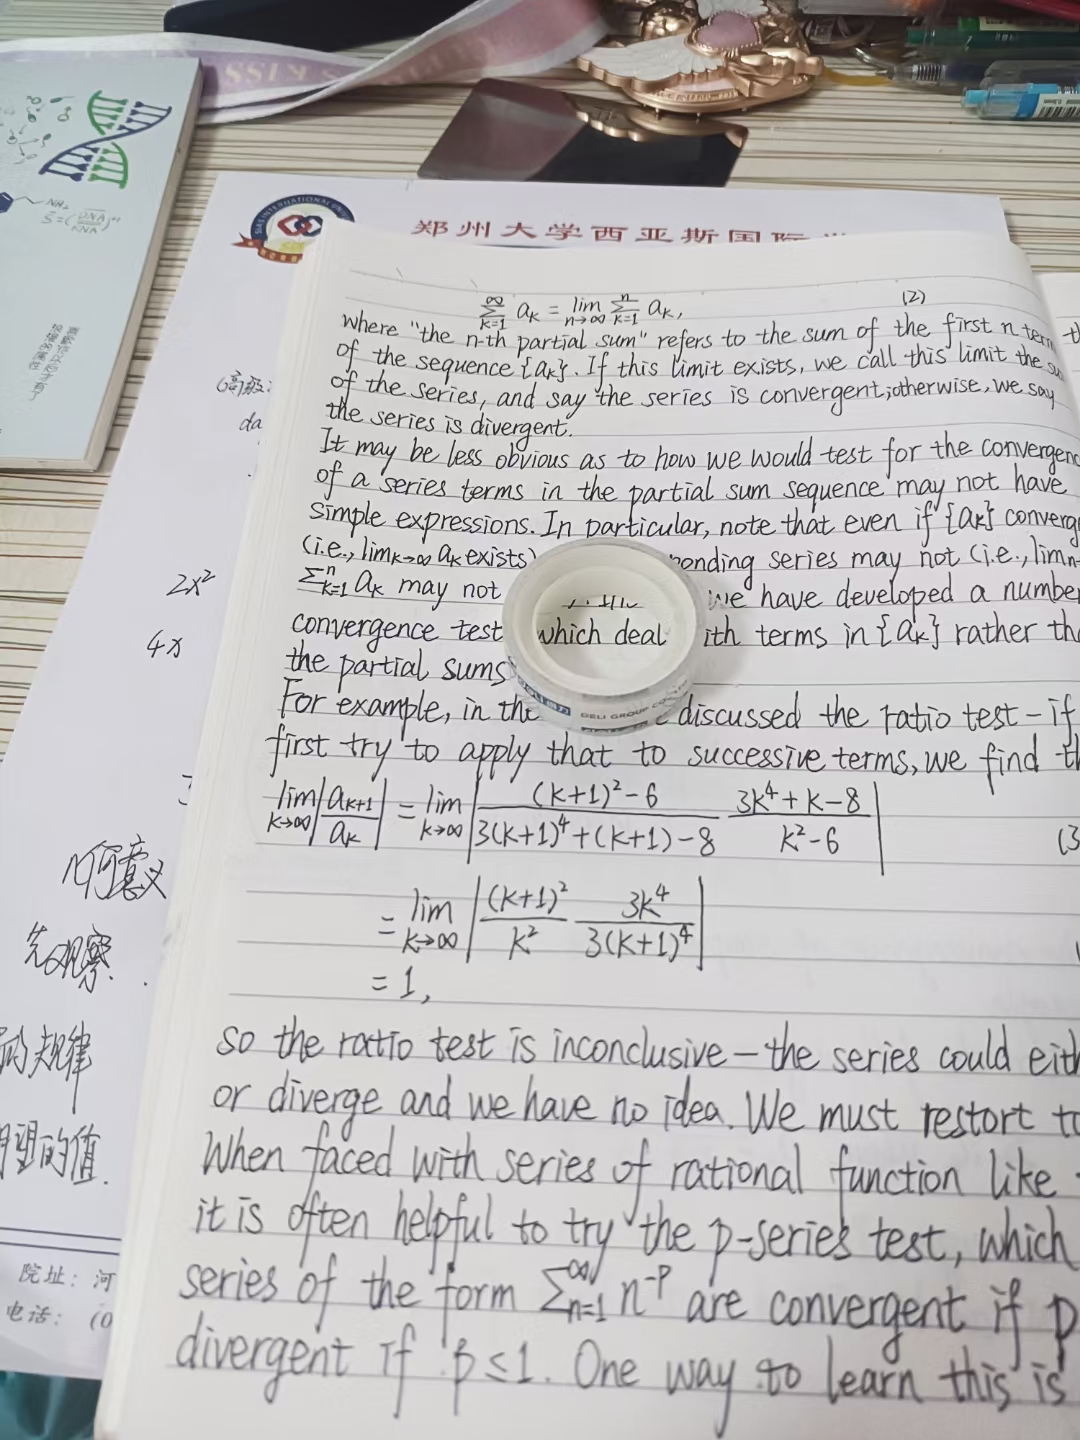 KISS
NH₂
郑州大学西亚斯国际
(高级
da
\sum_{k=1}^{\infty} a_k = \lim_{n→∞} \sum_{k=1}^{n} a_k, (2)
where "the n-th partial sum" refers to the sum of the first n term
of the sequence {a_k}. If this limit exists, we call this limit the su
of the series, and say the series is convergent; otherwise, we say
the series is divergent.
It may be less obvious as to how we would test for the convergenc
of a series terms in the partial sum sequence may not have
simple expressions. In particular, note that even if {a_k} converg
(i.e., lim_{k→∞} a_k exists) ponding series may not (i.e., lim_n
\sum_{k=1}^{n} a_k may not we have developed a number
convergence test which deal ith terms in {a_k} rather tha
the partial sums
For example, in the discussed the ratio test - if
first try to apply that to successive terms, we find th
\lim_{k→∞} |a_{k+1}/a_k| = \lim_{k→∞} |((k+1)²-6)/(3(k+1)⁴+(k+1)-8) (3k⁴+k-8)/(k²-6)| (3
= \lim_{k→∞} |(k+1)²/k² 3k⁴/(3(k+1)⁴)|
= 1,
so the ratio test is inconclusive - the series could eith
or diverge and we have no idea. We must restort to
When faced with series of rational function like
it is often helpful to try the p-series test, which
series of the form \sum_{n=1}^{∞} n^{-p} are convergent if p
divergent if p≤1. One way to learn this is
DELI GROUP CO
2x²
4x
几何意义
先观察.
的规律
期望的值.
院址：河
电话：(0